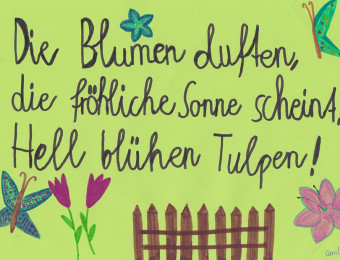 Die Blumen duften,
die fröhliche Sonne scheint,
Hell blühen Tulpen!